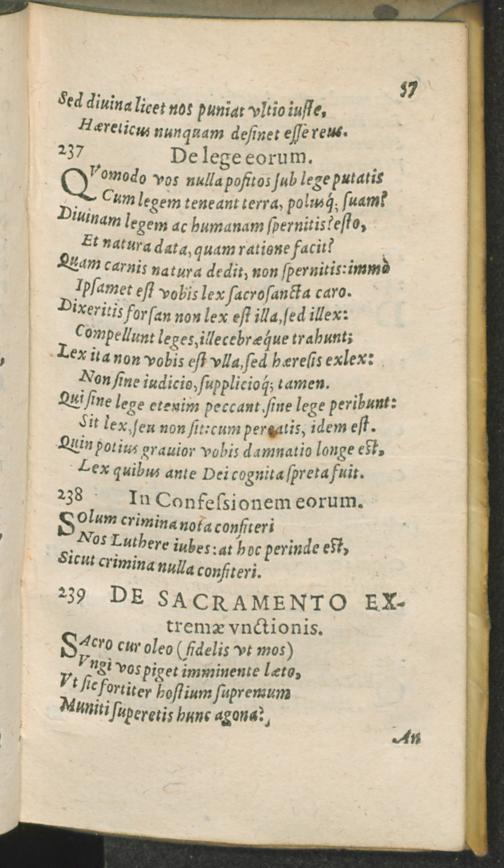 57
Sed diuina licet nos puniat vltio iuste,
Hæreticus nunquam desinet esse reus.
237 De lege eorum.
QVomodo vos nulla positos sub lege putatis
Cum legem teneant terra, polusq́; suam?
Diuinam legem ac humanam spernitis? esto,
Et natura data, quam ratione facit?
Quam carnis natura dedit, non spernitis: immò
Ipsamet est vobis lex sacrosancta caro.
Dixeritis forsan non lex est illa, sed illex:
Compellunt leges, illecebræque trahunt;
Lex ita non vobis est vlla, sed hæresis exlex:
Non sine iudicio, supplicioq́; tamen.
Qui sine lege etenim peccant, sine lege peribunt:
Sit lex, seu non sit: cum pereatis, idem est.
Quin potius grauior vobis damnatio longe est,
Lex quibus ante Dei cognita spreta fuit.
238 In Confessionem eorum.
SOlum crimina nota confiteri
Nos Luthere iubes: at hoc perinde est,
Sicut crimina nulla confiteri.
239 DE SACRAMENTO EX-
tremæ vnctionis.
SAcro cur oleo (fidelis vt mos)
Vngi vos piget imminente læto,
Vt sic fortiter hostium supremum
Muniti superetis hunc agona?
An